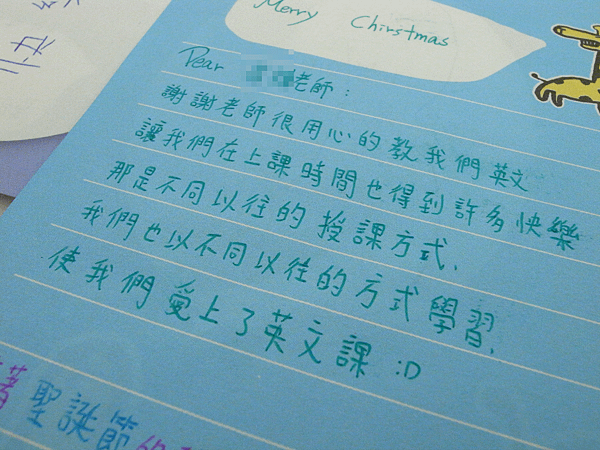 Merry Chirstmas
Dear 老師：
謝謝老師很用心的教我們英文
讓我們在上課時間也得到許多快樂
那是不同以往的授課方式、
我們也以不同以往的方式學習、
使我們愛上了英文課 :D
著聖誕節的